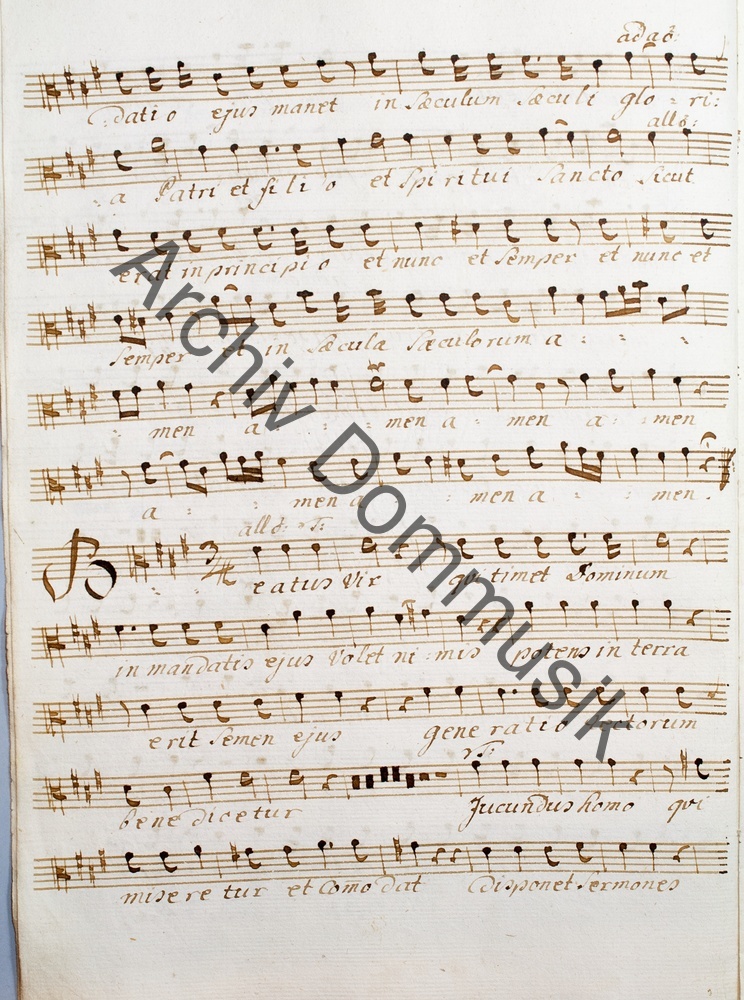 adagō:
datio ejus manet in Sæculum Sæculi glo = ri:
allō:
: a Patri et filio et Spiritui Sancto Sicut
erat in principio et nunc et Semper et nunc et
Semper et in Sæcula Sæculorum a = = =
: men a : : men a : men a : men
a : : men a : men a : : men.
allō: T:
Beatus Vir qui timet Dominum
in mandatis ejus Volet ni : mis potens in terra
erit Semen ejus generatio rectorum
benedicetur Jucundus homo qui
miseretur et Com̄odat disponet Sermones
Archiv Dommusik